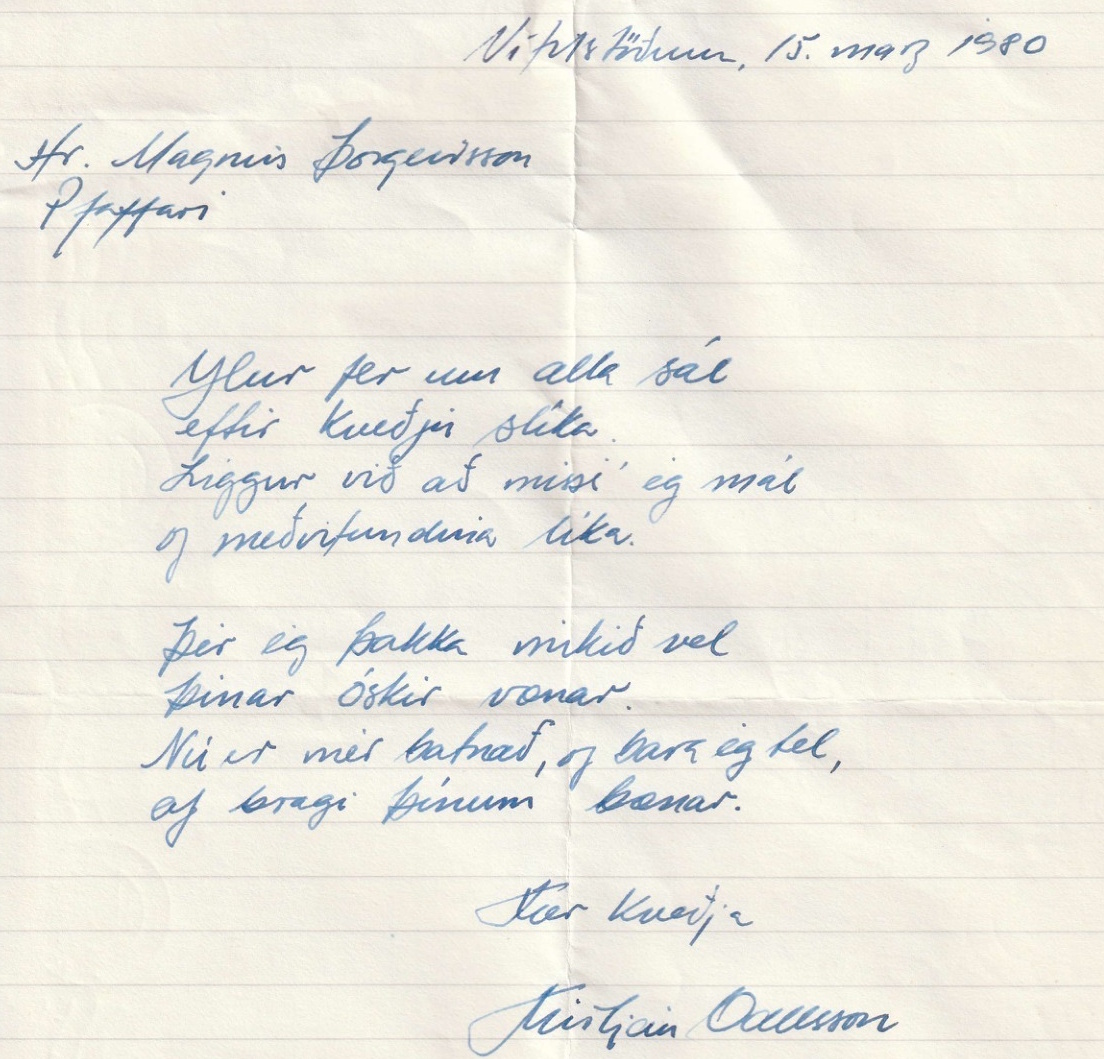 Vífilstöðum, 15. marz 1980
Hr. Magnús Þorgeirsson
Pfaffari
Ylur fer um alla sál
eftir kveðju slíka.
Liggur við að missi ég mál
og meðvitundina líka.
Þér ég þakka mikið vel
þínar óskir vænar.
Nú er mér batnað, og bara ég tel,
af bragi þínum bænar.
Kær kveðja
Kristján